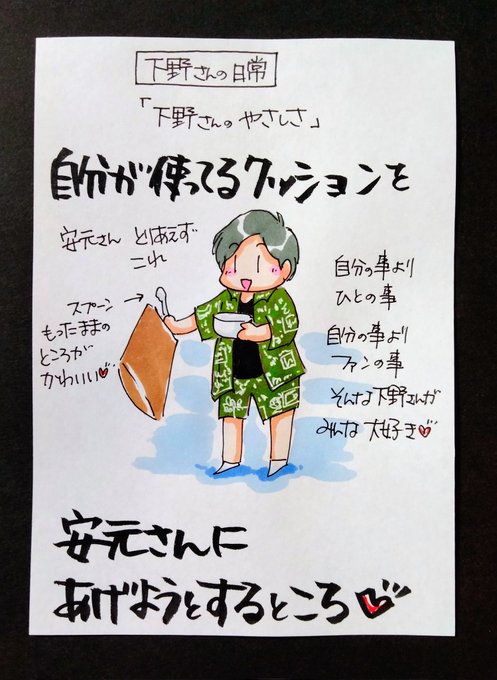 下野さんの日常
「下野さんのやさしさ」
自分が使ってるクッションを
安元さん とりあえず
これ
スプーン→
もったままの
ところが
かわいい♡
自分の事より
ひとの事
自分の事より
ファンの事
そんな下野さんが
みんな大好き♡
安元さんに
あげようとするところ♡